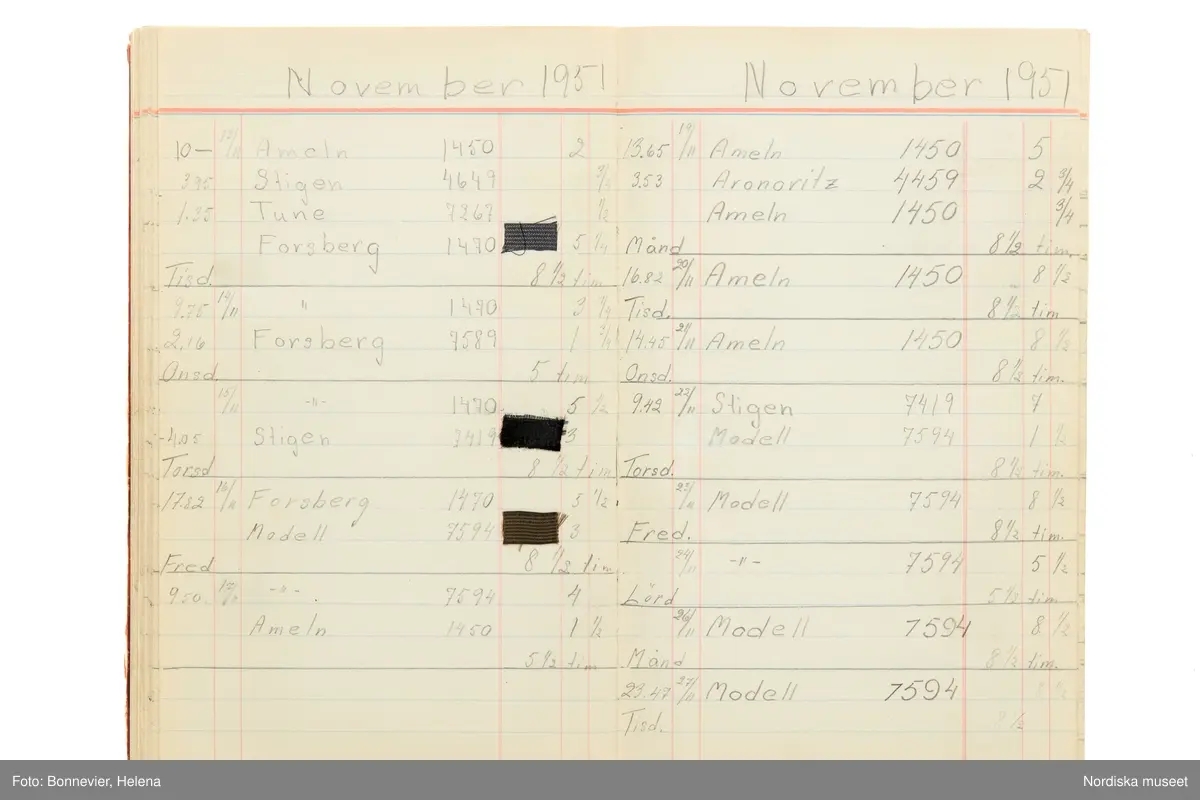 November 1951
10— 13/11 Ameln 1450 2
3.95 Stigen 4649 3/4
1.35 Tune 7267 1/2
Forsberg 1470 5 1/4
Tisd. 8 1/2 tim
9.75 14/11 " 1470 3 1/4
2.16 Forsberg 7589 1 3/4
Onsd. 5 tim
15/11 -"- 1470 5 1/2
4.05 Stigen 7419 3
Torsd 8 1/2 tim
17.82 16/11 Forsberg 1470 5 1/2
Modell 7594 3
Fred 8 1/2 tim
9.50 17/11 -"- 7594 4
Ameln 1450 1 1/2
5 1/2 tim
November 1951
13.65 19/11 Ameln 1450 5
3.53 Aronoritz 4459 2 3/4
Ameln 1450 3/4
Månd 8 1/2 tim.
16.82 20/11 Ameln 1450 8 1/2
Tisd. 8 1/2 tim
14.45 21/11 Ameln 1450 8 1/2
Onsd. 8 1/2 tim.
9.42 22/11 Stigen 7419 7
Modell 7594 1 1/2
Torsd. 8 1/2 tim.
23/11 Modell 7594 8 1/2
Fred. 8 1/2 tim.
24/11 -"- 7594 5 1/2
Lörd 5 1/2 tim
26/11 Modell 7594 8 1/2
Månd 8 1/2 tim.
23.47 27/11 Modell 7594 8 1/2
Tisd. 8 1/2
Foto: Bonnevier, Helena
Nordiska museet